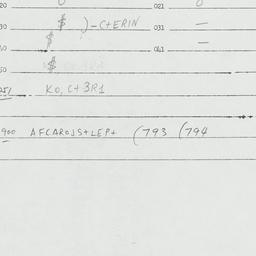 20 0 021 0
30 $ )-C+ERIN 031 —
40 $ 041 —
50 $
251 KO, C+3R1
900 AFCAROJS+LEP+ (793 (794